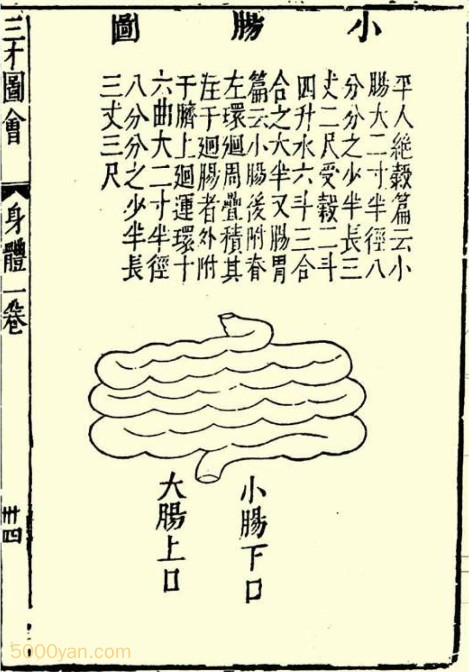 小腸圖
平人絶穀篇云小
腸大二寸半徑八
分分之少半長三
丈二尺受穀二斗
四升水六斗三合
合之大半又腸胃
篇云小腸後附脊
左環廻周疊積其
注于廻腸者外附
于臍上廻運環十
六曲大二寸半徑
八分分之少半長
三丈三尺
小腸下口
大腸上口
三才圖會
身體一卷
卅四
5000yan.com